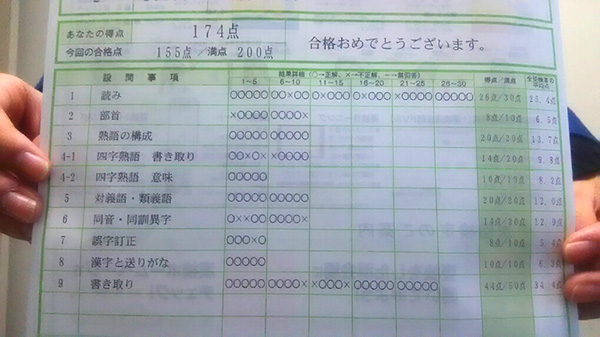 あなたの得点 174点
今回の合格点 155点／満点 200点 合格おめでとうございます。
設問事項 結果詳細 （○→正解、×→不正解、－→無回答） 得点／満点 全受検者の平均点
1～5 6～10 11～15 16～20 21～25 26～30
1 読み ○○○○○ ○○×○○ ○×○○○ ○×○○○ ×○○○○ ○○○○○ 26点/30点 25.4点
2 部首 ×○○○○ ○○○○× 8点/10点 6.5点
3 熟語の構成 ○○○○○ ○○○○○ 20点/20点 13.7点
4-1 四字熟語 書き取り ○○×○× ×○○○○ 14点/20点 9.8点
4-2 四字熟語 意味 ○○○○○ 10点/10点 8.2点
5 対義語・類義語 ○○○○○ ○○○○○ 20点/20点
6 同音・同訓異字 ○××○○ ○○○○× 14点/20点 12.9点
7 誤字訂正 ○○○×○ 8点/10点 5.4点
8 漢字と送りがな ○○○○○ 10点/10点 6.3点
9 書き取り ○○○○○ ○○○○× ×○○○× ○○○○○ ○○○○○ 44点/50点 34.4点